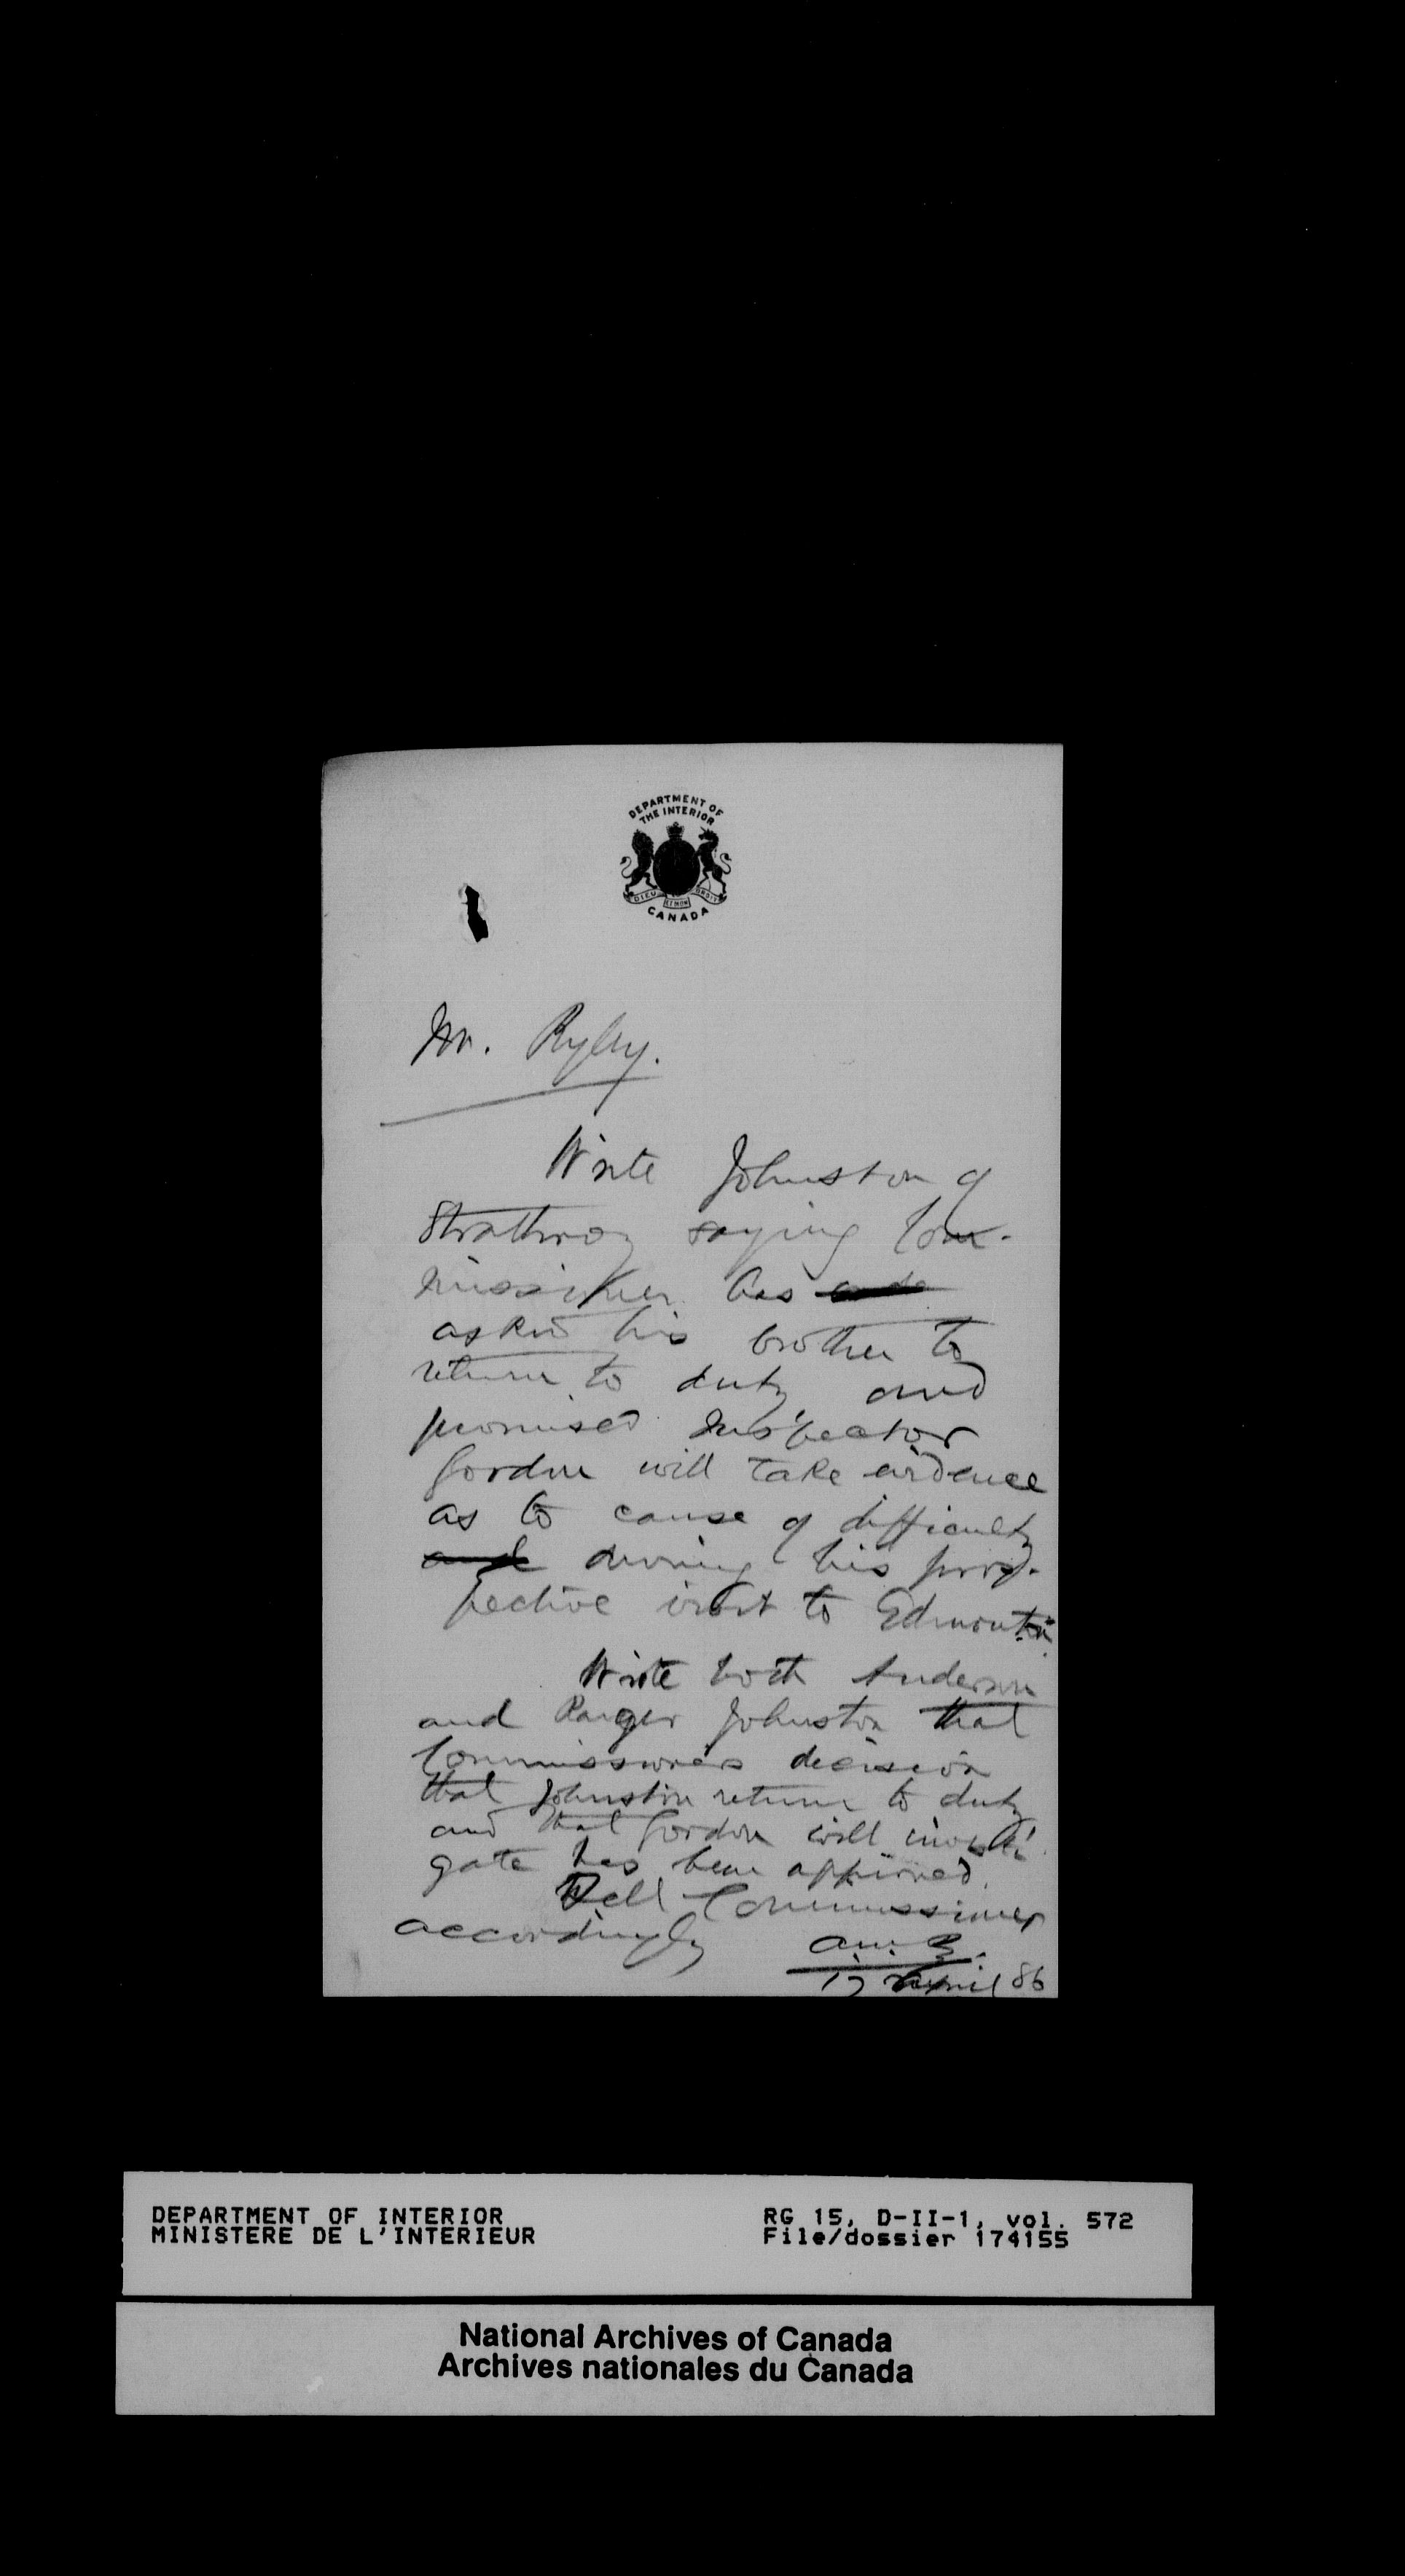 DEPARTMENT OF
THE INTERIOR
DIEU ET MON DROIT
CANADA
Mr. Ryley.
Write Johnston of
Strathroy saying Com-
missioner has
asked his brother to
return to duty and
promised Inspector
Gordon will take evidence
as to cause of difficulty
and during his pros-
pective visit to Edmonton
Write both Anderson
and Ranger Johnston that
Commissioner's decision
that Johnston return to duty
and that Gordon will investi-
gate has been approved.
Tell Commissioner
accordingly
A.M.B.
17 April 86
DEPARTMENT OF INTERIOR
MINISTERE DE L'INTERIEUR
RG 15, D-II-1, vol. 572
File/dossier 174155
National Archives of Canada
Archives nationales du Canada